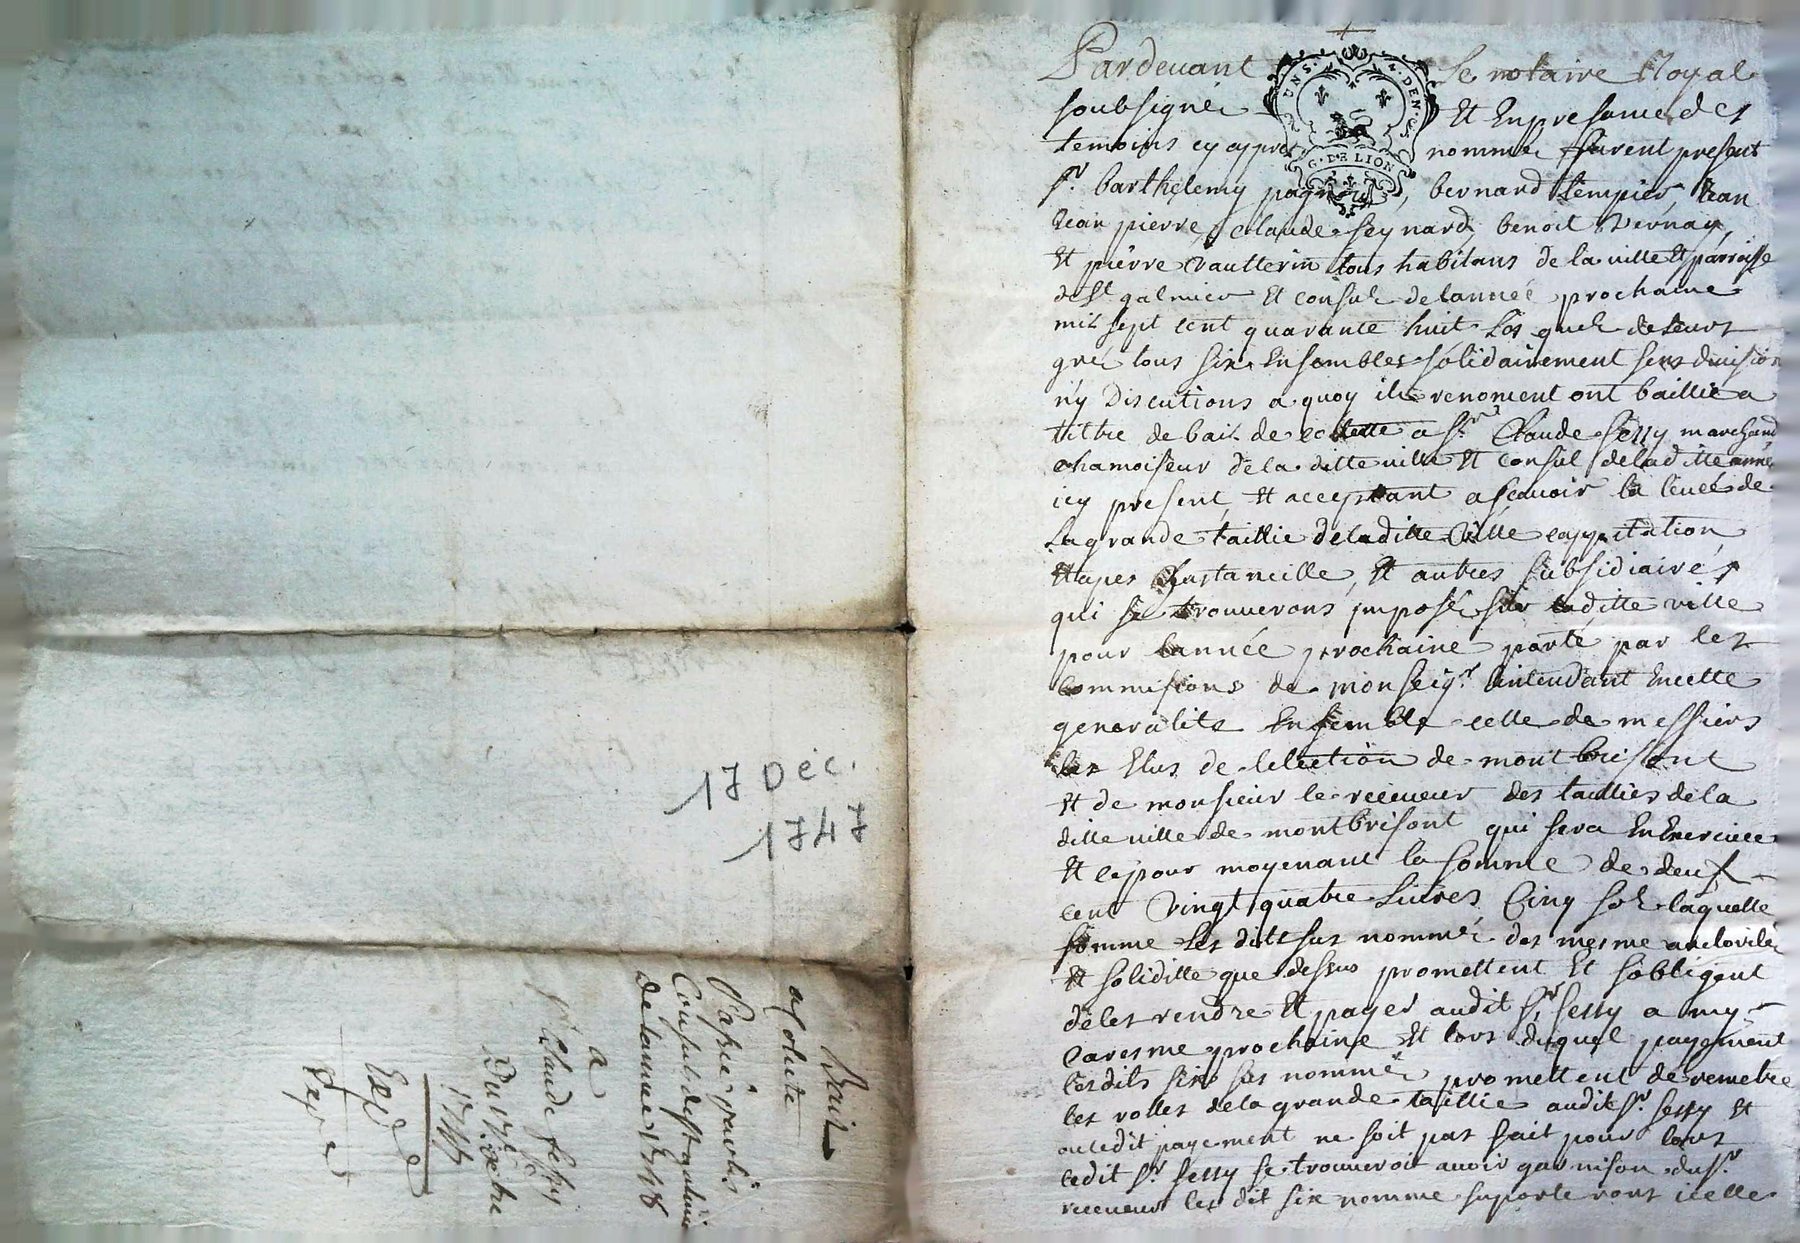 Pardevant Le notaire Royal
soubsigné Et En presance des
temoins cy apprés nommé furent present
Sr. barthelemy pagnieu, bernard tempier, Jean
Jean pierre, claude seynard, benoit Vernay,
Et pierre vautterin tous habitans de la ville Et parroisse
de St galmier Et consuls delannée prochaine
mil sept cent quarante huit Les quels de leurs
gré tous six Ensambles solidairement sens division
ny Discutions a quoy ils renoncent ont baillié a
tiltre de bail de colette a Sr. Claude fessy marchand
chamoiseur dela ditte ville Et consul deladitte année
icy present, Et acceptant ascavoir la levée de
La grande taillie deladitte Ville cappitation,
Etapes Ustancille, Et autres subsidiaires
qui se trouverons imposé sur laditte ville
pour lannée prochaine porté par les
commissions de monseigr. lintendant Encette
generalité Ensemble celle de messieurs
les Elus de lelection de montbrisont
Et de monsieur le receveur des taillies dela
ditte ville de montbrisont qui sera En Exercice
Et ce pour moyenant la somme de deux
cent vingt quatre Livres Cinq sols laquelle
somme Les dits sus nommé des mesme
Et soliditte que dessus promettent Et sobligent
deles rendre Et payer audit Sr. fessy a my
Caresme prochaine Et lors duquel payement
lesdits six sus nommé promettent de remetre
les rolles dela grande taillie audit Sr. fessy Et
ou ledit payement ne soit pas fait pour lors
ledit Sr. fessy se trouveroit avoir garnison du Sr.
receveur les dit six nommé suporterons icelle
17 Déc.
1747
Bail
a Colette
Passé par les
Consuls de St galmier
de lannée 1748
a
Sr Claude fessy
Du 17e. xbre
1747
Expedié